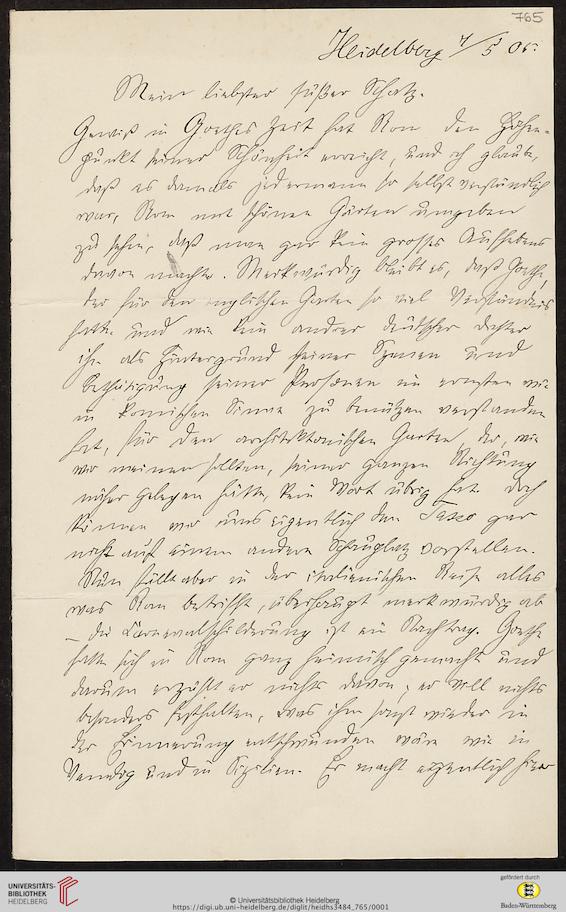 765
Heidelberg 4/5 05.
Mein liebster süßer Schatz.
Gewiß in Goethes Zeit hat Rom den Höhe-
punkt seiner Schönheit erreicht, und ich glaube,
daß es damals jedermann so selbstverständlich
war, Rom mit schönen Gärten umgeben
zu sehen, daß man gar kein großes Aufhebens
davon machte. Merkwürdig bleibt es, daß Goethe,
der für den englischen Garten so viel Verständnis
hatte und wie kein andrer deutscher Dichter
ihn als Hintergrund seiner Scenen und
Bethätigung seiner Personen im ernsten wie
im komischen Sinne zu benützen verstanden
hat, für den architektonischen Garten, der, wie
wir meinen sollten, seiner ganzen Richtung
näher gelegen hätte, kein Wort übrig hat. Doch
können wir uns eigentlich den Tasso gar
nicht auf einem andern Schauplatz vorstellen.
Nun fällt aber in der italienischen Reise alles
was Rom betrifft, überhaupt merkwürdig ab
– die Carnevalschilderung ist ein Nachtrag. Goethe
hatte sich in Rom ganz heimisch gemacht und
darum erzählt er nichts davon; er will nichts
besonders festhalten, was ihm sonst wieder in
der Erinnerung entschwunden wäre wie in
Venedig und in Sizilien. Er macht eigentlich hier
UNIVERSITÄTS-
BIBLIOTHEK
HEIDELBERG
© Universitätsbibliothek Heidelberg
https://digi.ub.uni-heidelberg.de/diglit/heidhs3484_765/0001
gefördert durch
Baden-Württemberg